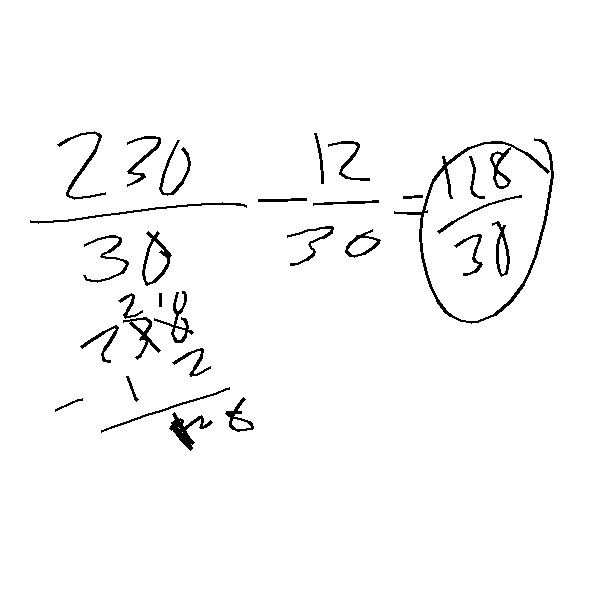 230/30 - 12/30 = 128/30
2 10
230
- 12
28